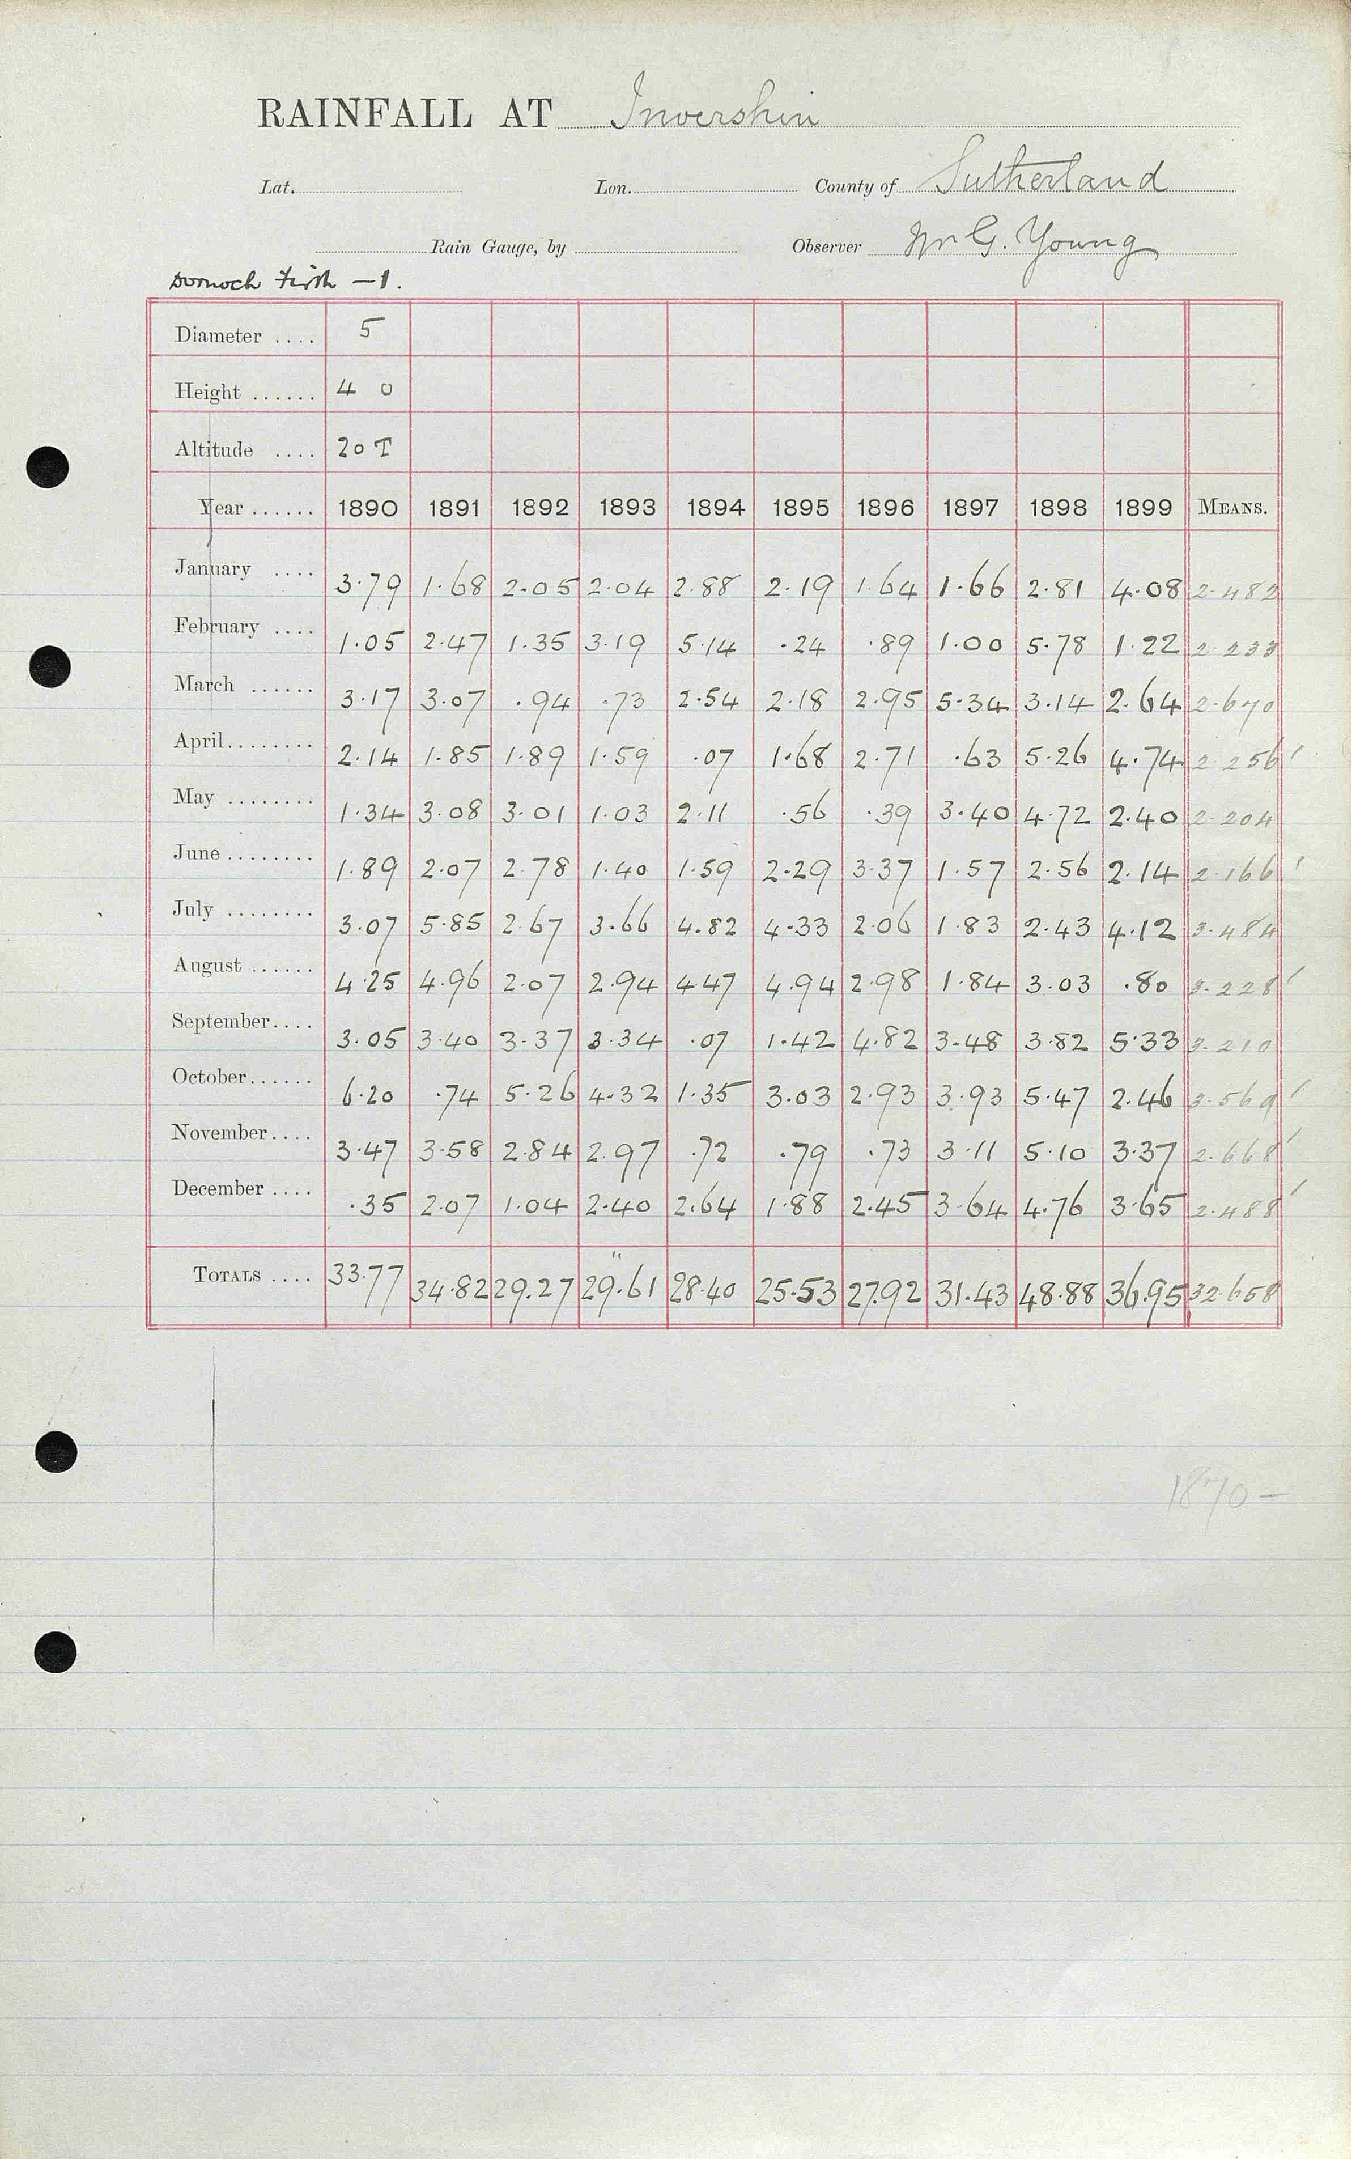 RAINFALL AT Invershin
Lat. Lon. County of Sutherland
Rain Gauge, by Observer Mr G. Young
Dornoch Firth — 1.
Diameter .... 5
Height ...... 4 0
Altitude .... 20 T
Year ...... 1890 1891 1892 1893 1894 1895 1896 1897 1898 1899 MEANS.
January .... 3.79 1.68 2.05 2.04 2.88 2.19 1.64 1.66 2.81 4.08 2.482
February .... 1.05 2.47 1.35 3.19 5.14 .24 .89 1.00 5.78 1.22 2.233
March ...... 3.17 3.07 .94 .73 2.54 2.18 2.95 5.34 3.14 2.64 2.670
April ........ 2.14 1.85 1.89 1.59 .07 1.68 2.71 .63 5.26 4.74 2.256
May ........ 1.34 3.08 3.01 1.03 2.11 .56 .39 3.40 4.72 2.40 2.204
June ........ 1.89 2.07 2.78 1.40 1.59 2.29 3.37 1.57 2.56 2.14 2.166
July ........ 3.07 5.85 2.67 3.66 4.82 4.33 2.06 1.83 2.43 4.12 3.484
August ...... 4.25 4.96 2.07 2.94 4.47 4.94 2.98 1.84 3.03 .80 3.228
September .... 3.05 3.40 3.37 3.34 .07 1.42 4.82 3.48 3.82 5.33 3.210
October ...... 6.20 .74 5.26 4.32 1.35 3.03 2.93 3.93 5.47 2.46 3.569
November .... 3.47 3.58 2.84 2.97 .72 .79 .73 3.11 5.10 3.37 2.668
December .... .35 2.07 1.04 2.40 2.64 1.88 2.45 3.64 4.76 3.65 2.488
TOTALS .... 33.77 34.82 29.27 29.61 28.40 25.53 27.92 31.43 48.88 36.95 32.658
1870 –